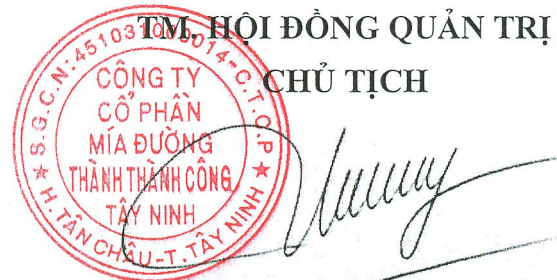 TM. HỘI ĐỒNG QUẢN TRỊ
CHỦ TỊCH
S.G.C.N:4510310000014-C.T.C.P
CÔNG TY
CỔ PHẦN
MÍA ĐƯỜNG
THÀNH THÀNH CÔNG
TÂY NINH
H.TÂN CHÂU-T.TÂY NINH